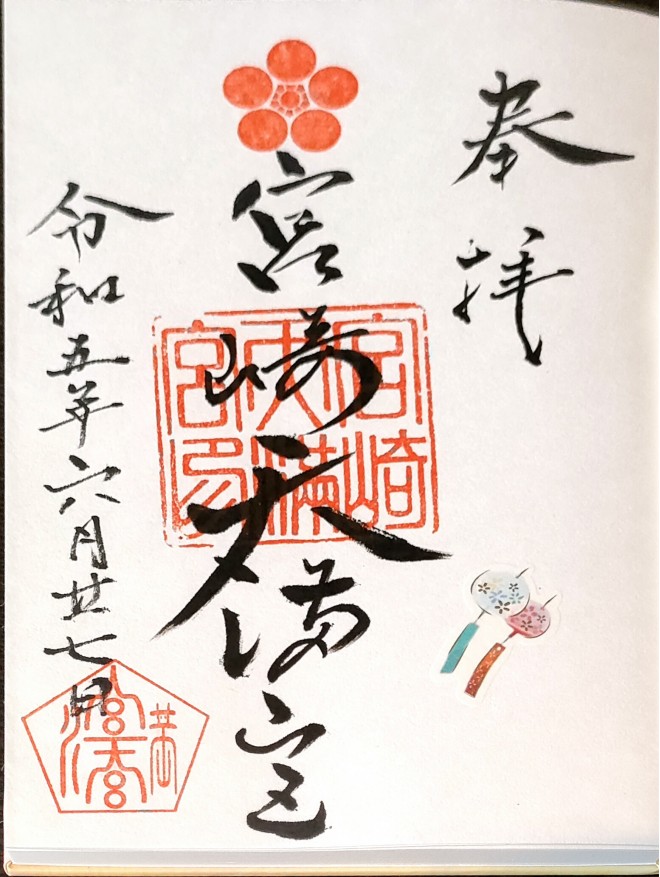 奉拝
宮崎天満宮
宮崎
天満
宮印
令和五年六月廿七日